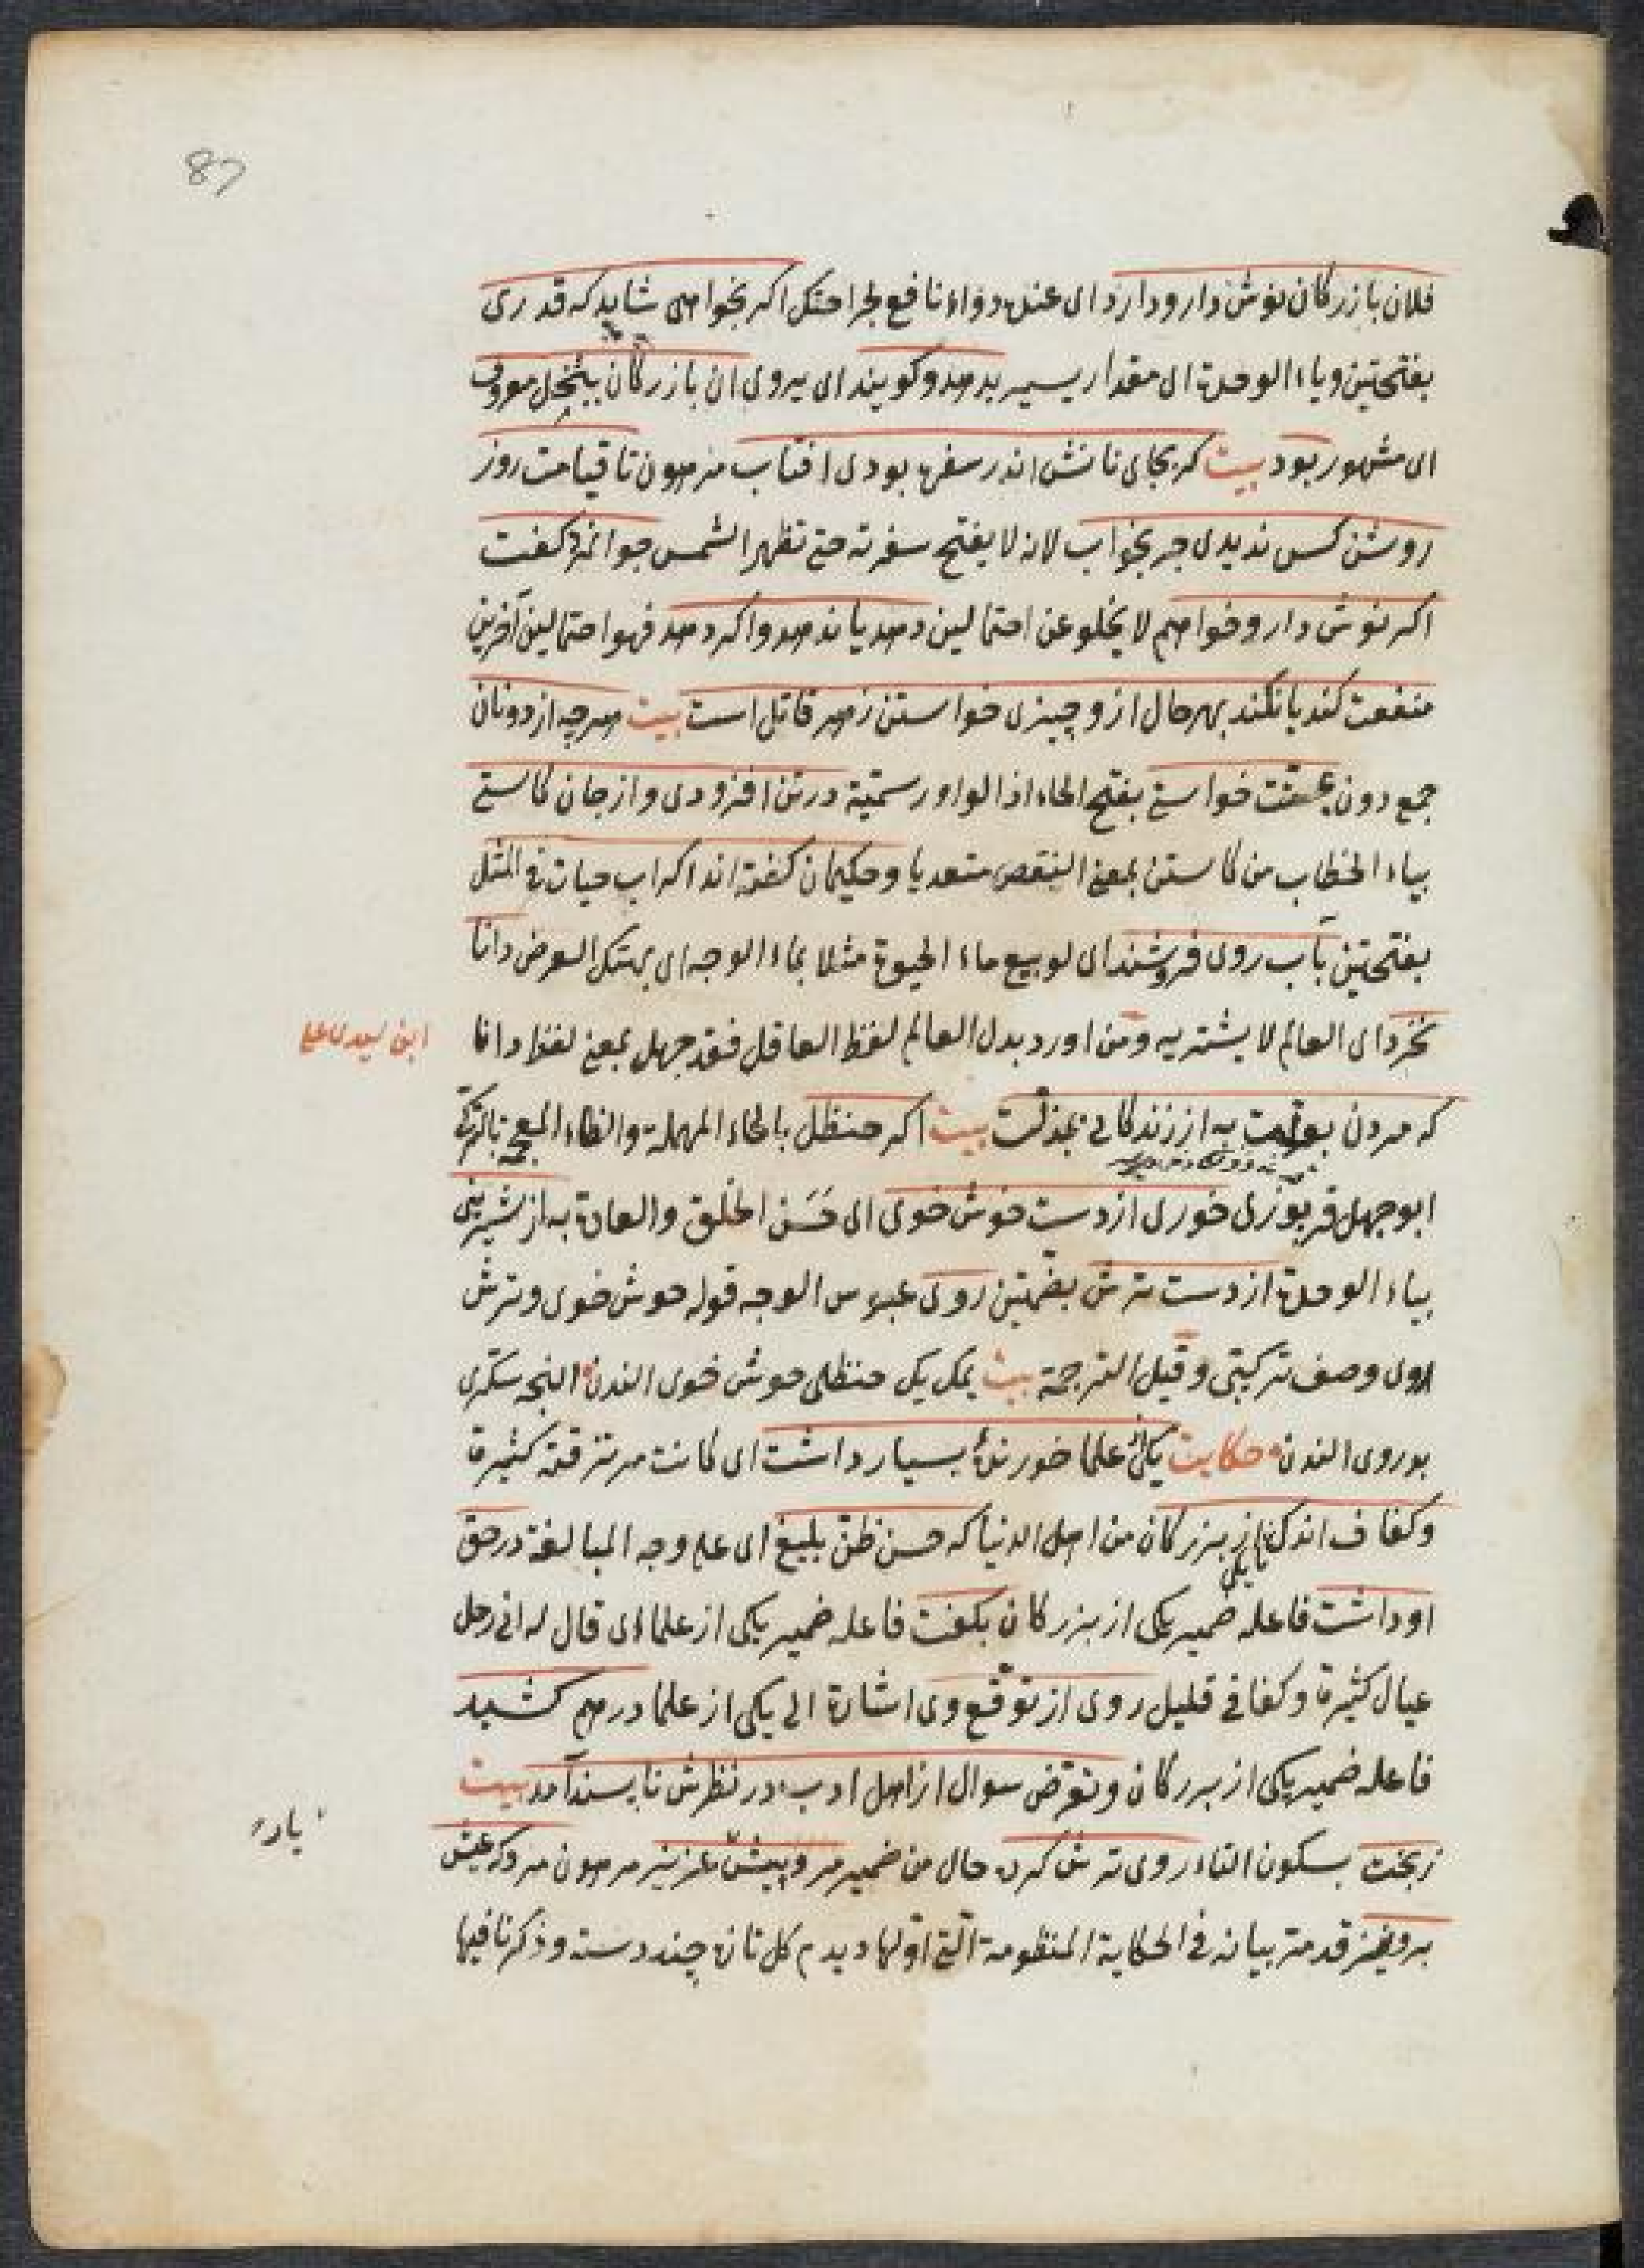 87
فلان بازركان نوش دارو دارد اى عنده دواء نافع لجراحتك اكر بخواهى شايد كه قدرى
بفتحتين وياء الوحدة اى مقدار يسير بدهد وكويند اى يروى ان بازركان ببخل معروف
اى مشهور بود بيت كر بجاى نانش اندر سفره بودى افتاب مرهون تا قيامت روز
روشن كس نديدى جز بخواب لانه لا يفتح سفرته حتى تظهر الشمس جوانمرد كفت
اكر نوش دارو خواهم لا يخلو عن احتمالين دهد يا ندهد واكر دهد فهو احتمالين آخرين
منفعت كند يا نكند بهر حال ازو چيزى خواستن زهر قاتل است بيت هر چه از دونان
جمع دون بمنت خواستى بفتح الخاء اذ الواو رسمية در تن افزودى واز جان كاستى
بياء الخطاب من كاستن بمعنى النقص متعديا وحكيمان كفته اند اكر اب حيات فى المثل
بفتحتين بآب روى فروشند اى لو بيع ماء الحيوة مثلا بماء الوجه اى بهتك العرض دانا
نخرد اى العالم لا يشتريه ومن اورد بدل العالم لفظ العاقل فقد جهل بمعنى لفظ دانا
كه مردن بعلت به از زندكانى بمذلت بيت اكر حنظل بالحاء المهملة والظاء المعجمة بالتركى
ابو جهل قربوزى خورى از دست خوش خوى اى حَسَن الخلق والعادة به از شيرينى
بياء الوحدة از دست ترش بضمتين روى عبوس الوجه قوله خوش خوى وترش
روى وصف تركيبى وقيل الترجمة بيت يمك يك حنظلى خوش خوى الندن النجه سكرى
بو روى الندن حكايت يكى از علما خورنده بسيار داشت اى كانت مرتزقته كثيرة
وكفاف اندك يكى از بزركان من اهل الدنيا كه حسن ظن بليغ اى على وجه المبالغة در حق
او داشت فاعله ضمير يكى از بزركان بكفت فاعله ضمير يكى از علما اى قال له انى رجل
عيال كثيرة وكفافى قليل روى از توقع وى اشارة الى يكى از علما در هم كشيد
فاعله ضمير يكى از بزركان وتعرض سوال از اهل ادب در نظرش ناپسند آمد بيت
زبخت بسكون التاء روى ترش كرده حال من ضمير مرو پيش عزيز مرهون مرو كه عيش
برو نيز قد مر بيانه فى الحكاية المنظومة التى اولها ديدم كل تازه چند دسته وذكرنا فيها
يار